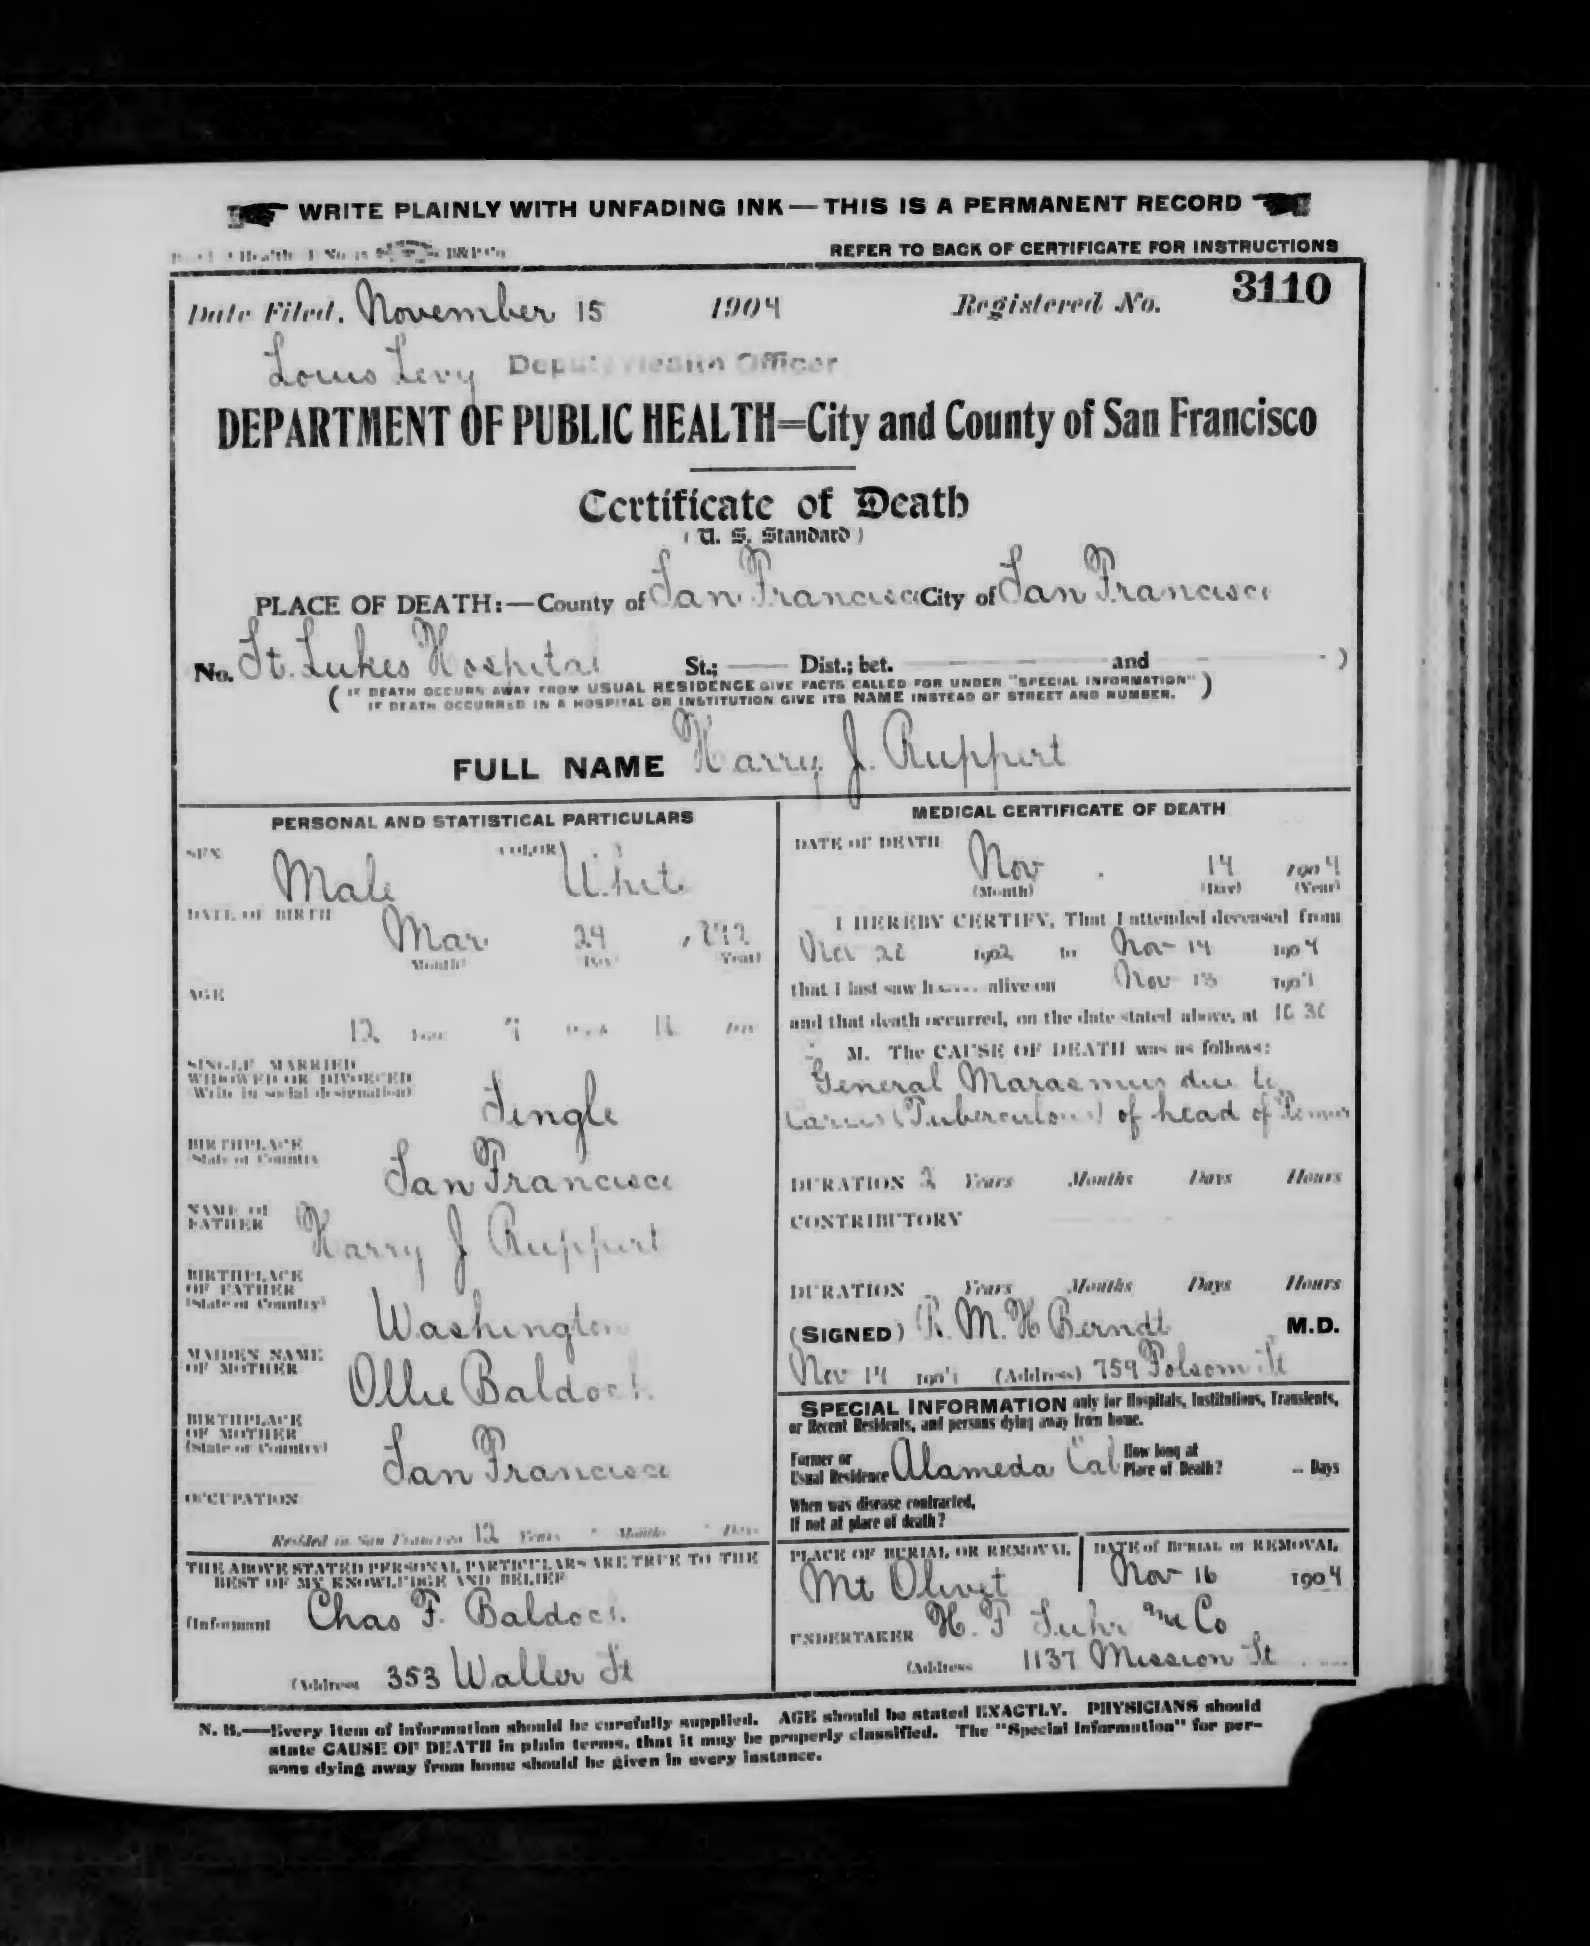 WRITE PLAINLY WITH UNFADING INK — THIS IS A PERMANENT RECORD
REFER TO BACK OF CERTIFICATE FOR INSTRUCTIONS
Date Filed, November 15 1904 Registered No. 3110
Louis Levy Deputy Health Officer
DEPARTMENT OF PUBLIC HEALTH=City and County of San Francisco
Certificate of Death
(U. S. Standard)
PLACE OF DEATH:—County of San Francisco City of San Francisco
No. St. Lukes Hospital St.; Dist.; bet. and )
( IF DEATH OCCURS AWAY FROM USUAL RESIDENCE GIVE FACTS CALLED FOR UNDER "SPECIAL INFORMATION" )
IF DEATH OCCURRED IN A HOSPITAL OR INSTITUTION GIVE ITS NAME INSTEAD OF STREET AND NUMBER.
FULL NAME Harry J. Ruppert
PERSONAL AND STATISTICAL PARTICULARS
SEX COLOR
Male White
DATE OF BIRTH
Mar 24 , 892
(Month) (Day) (Year)
AGE
12 Years Months Days
SINGLE MARRIED
WIDOWED OR DIVORCED
(Write in social designation)
Single
BIRTHPLACE
(State or Country
San Francisco
NAME OF
FATHER
Harry J Ruppert
BIRTHPLACE
OF FATHER
(State or Country)
Washington
MAIDEN NAME
OF MOTHER
Ollie Baldock
BIRTHPLACE
OF MOTHER
(State or Country)
San Francisco
OCCUPATION
Resided in San Francisco 12 Years Months Days
THE ABOVE STATED PERSONAL PARTICULARS ARE TRUE TO THE
BEST OF MY KNOWLEDGE AND BELIEF
(Informant Chas F. Baldock
(Address 353 Waller St
MEDICAL CERTIFICATE OF DEATH
DATE OF DEATH
Nov 14 1904
(Month) (Day) (Year)
I HEREBY CERTIFY, That I attended deceased from
1902 to Nov 14 1904
that I last saw h alive on Nov 13 1904
and that death occurred, on the date stated above, at 10 30
M. The CAUSE OF DEATH was as follows:
General Marasmus due to
Caries (Tuberculous) of head of Femur
DURATION 2 Years Months Days Hours
CONTRIBUTORY
DURATION Years Months Days Hours
(SIGNED) R. M. H Berndt M.D.
Nov 14 1904 (Address) 759 Folsom St
SPECIAL INFORMATION only for Hospitals, Institutions, Transients,
or Recent Residents, and persons dying away from home.
Former or
Usual Residence Alameda Cal How long at
Place of Death? Days
When was disease contracted,
If not at place of death?
PLACE OF BURIAL OR REMOVAL DATE of BURIAL or REMOVAL
Mt Olivet Nov 16 1904
UNDERTAKER H. F Suhr & Co
(Address 1137 Mission St
N. B.—Every item of information should be carefully supplied. AGE should be stated EXACTLY. PHYSICIANS should
state CAUSE OF DEATH in plain terms, that it may be properly classified. The "Special Information" for per-
sons dying away from home should be given in every instance.